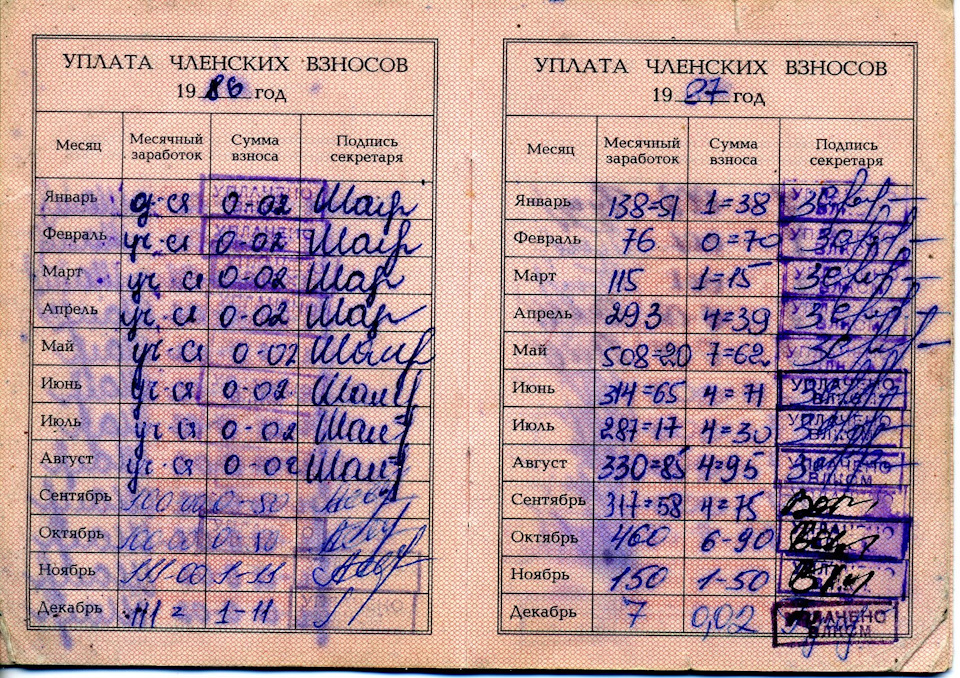 УПЛАТА ЧЛЕНСКИХ ВЗНОСОВ
1986 год
Месяц Месячный заработок Сумма взноса Подпись секретаря
Январь уч-ся 0-02
Февраль уч-ся 0-02
Март уч-ся 0-02
Апрель уч-ся 0-02
Май уч-ся 0-02
Июнь уч-ся 0-02
Июль уч-ся 0-02
Август уч-ся 0-02
Сентябрь
Октябрь
Ноябрь 111-00 1-11
Декабрь 111= 1-11
УПЛАТА ЧЛЕНСКИХ ВЗНОСОВ
1987 год
Месяц Месячный заработок Сумма взноса Подпись секретаря
Январь 138=51 1=38
Февраль 76 0=70
Март 115 1=15
Апрель 293 4=39
Май 508=20 7=62
Июнь 314=65 4=71 УПЛАЧЕНО
Июль 287=17 4=30
Август 330=85 4=95 УПЛАЧЕНО ВЛКСМ
Сентябрь 317=58 4=75
Октябрь 460 6-90
Ноябрь 150 1-50
Декабрь 7 0,02 УПЛАЧЕНО ВЛКСМ